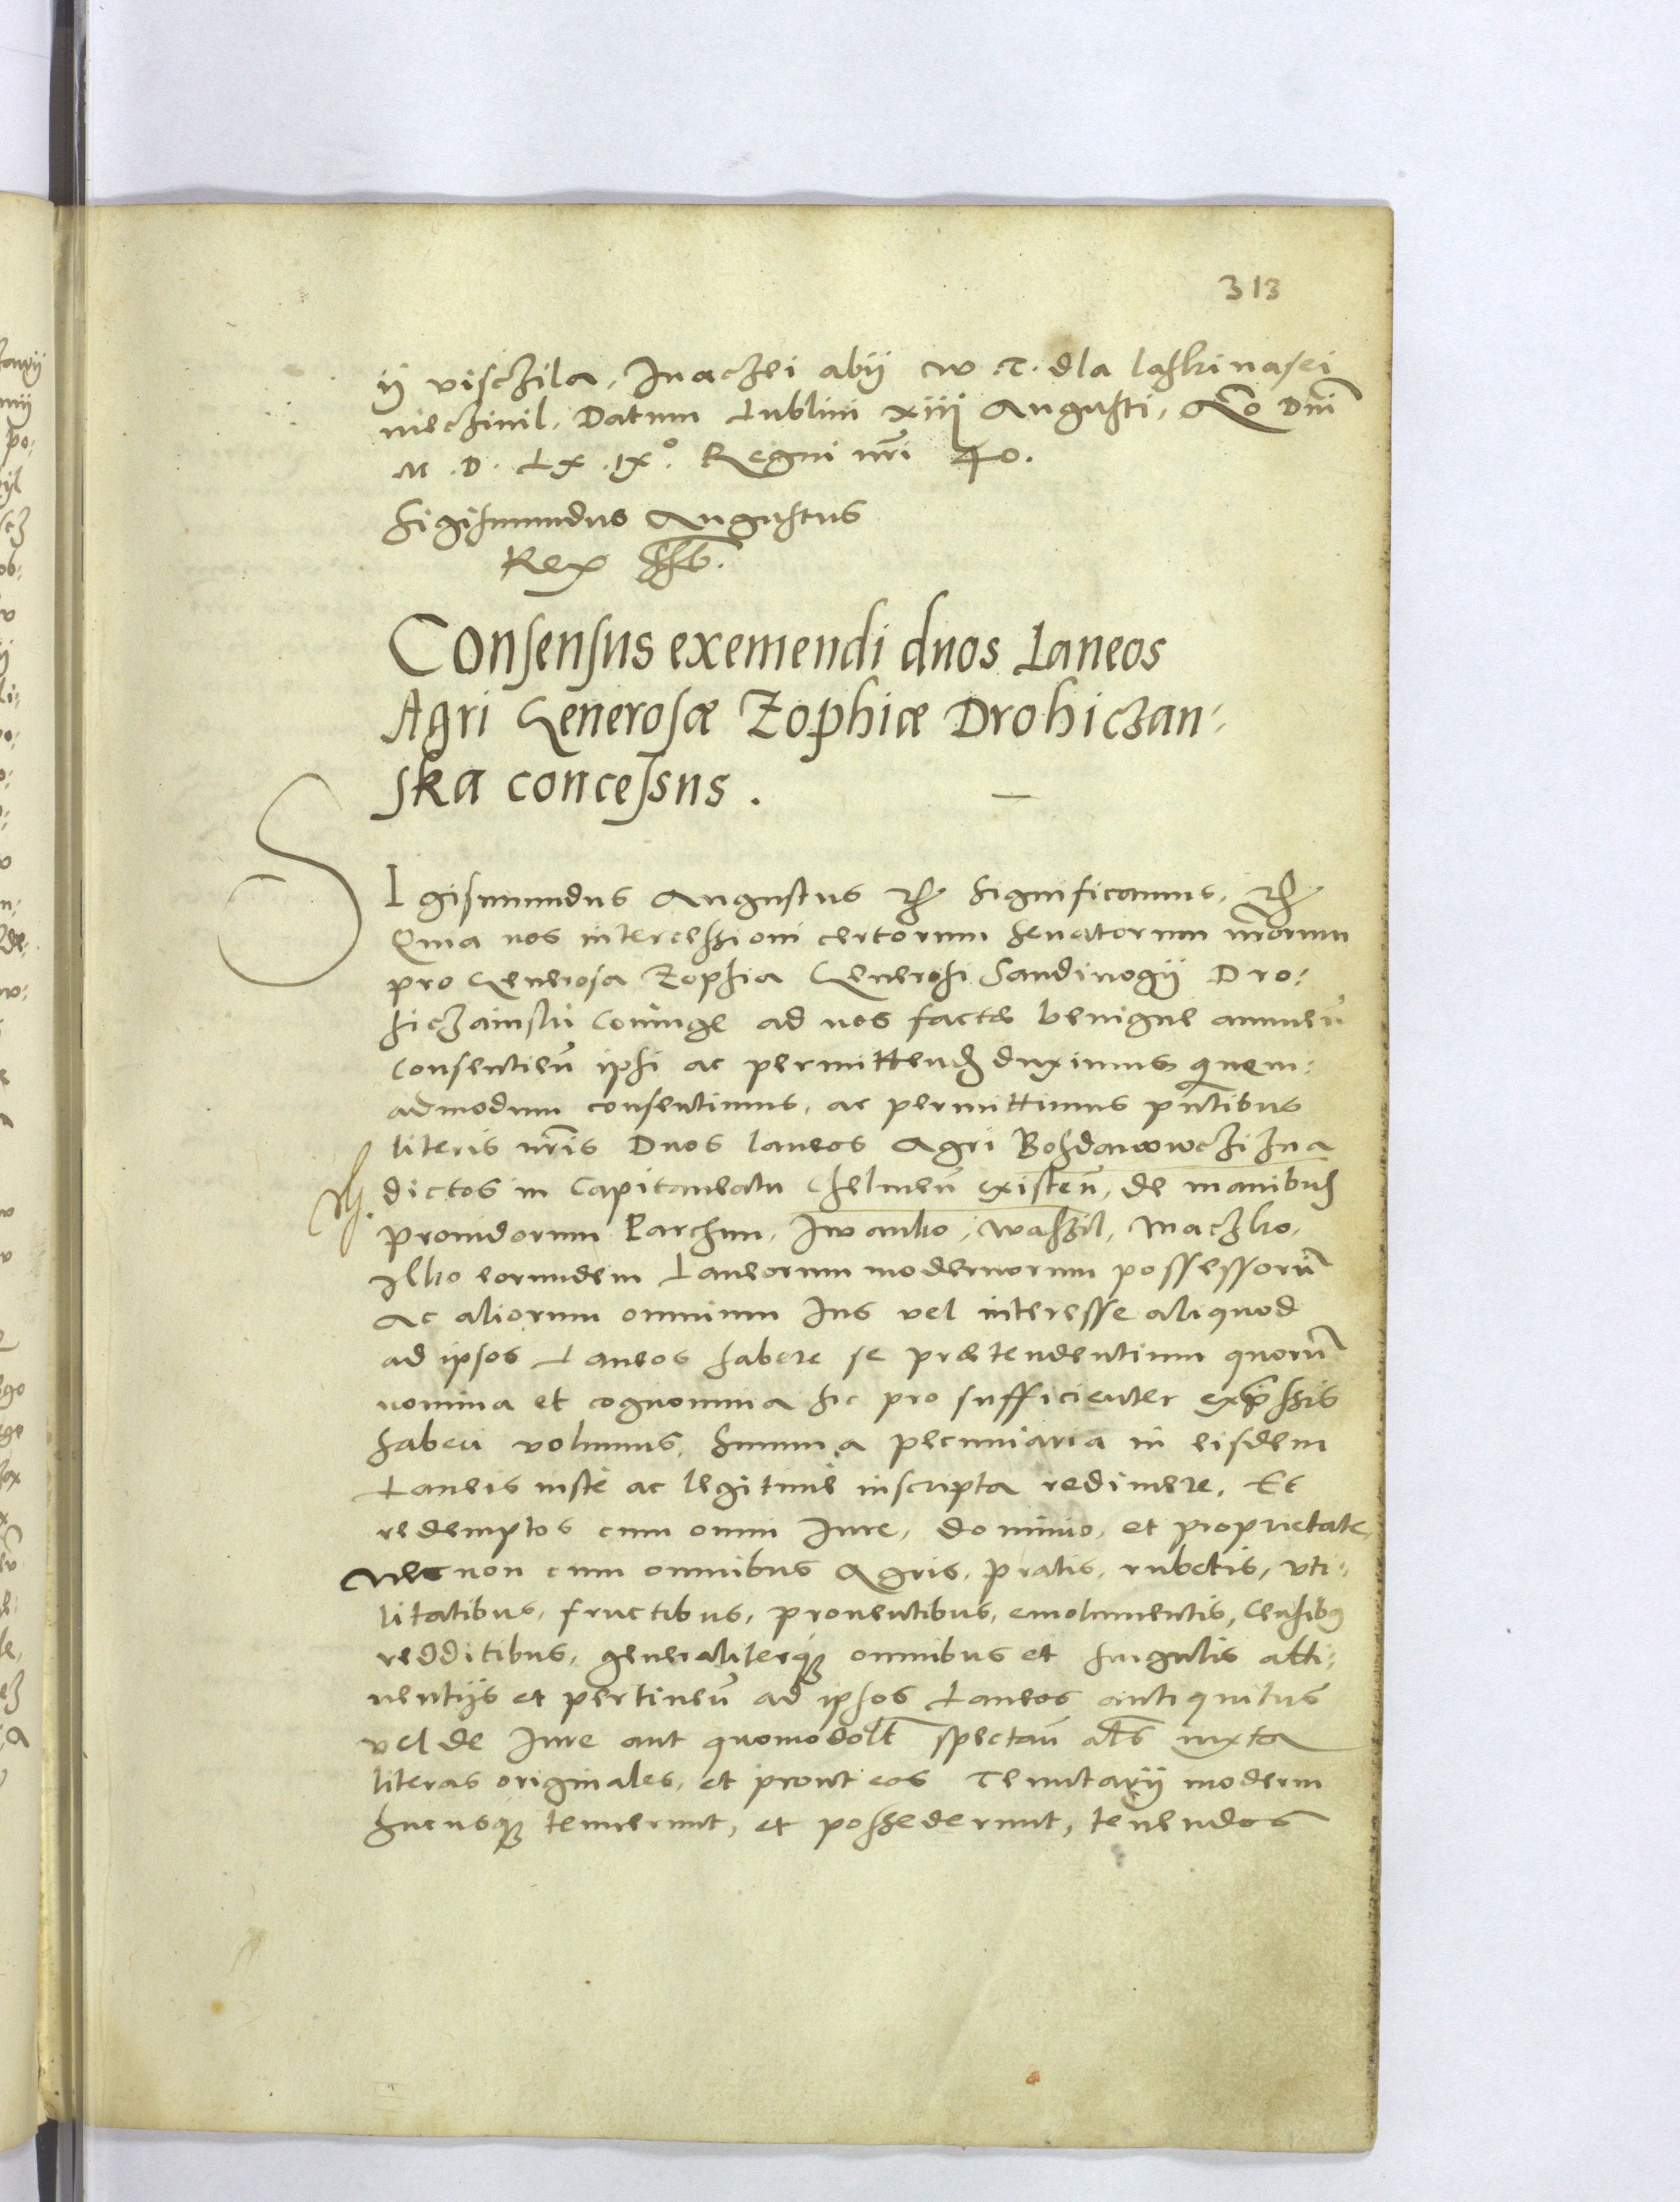 313
ÿ viſczila, Inaczei abÿ W. T. dla laſki naſei
nieczinil. Datum Lublini xiij Auguſti, Año Dñi
M. D. LX. IX°. Regni nr̃i 40.
Sigiſmundus Auguſtus
Rex
Conſenſus exemendi duos Laneos
Agri Generoſæ Zophiæ Drohiczan:
ſka conceſsus.
SIgiſmundus Auguſtus Significamus,
Quia nos interceſsioni certorum Senatorum nr̃orum
pro Generoſa Zophia Generoſi Sandiuogÿ Dro:
hiczainſkii Coniuge ad nos factæ benigne annueñ
Conſentieñ ipſi ac permittend duximus quem:
admodum conſentimus, ac permittimus pñtibus
literis nr̃is Duos laneos Agri Bohdanowczizna
dictos in Capitaneatu Chelmeñ exiſteñ, de manibus
Prouidorum Parchun, Iwanko, Waſzil, Maczko,
Ilko eorundem Laneorum modernorum poſſeſſorũ
Ac aliorum omnium Ius vel intereſſe aliquod
ad ipſos Laneos habere ſe prætendentium quorũ
nomina et cognomina hic pro ſufficienter expreſsis
haberi volumus, Summa pecuniaria in eiſdem
Laneis iuſte ac legitimè inſcripta redimere, Et
redemptos cum omni Iure, dominio, et proprietate,
Necnon cum omnibus Agris, pratis, rubetis, vti:
litatibus, fructibus, prouentibus, emolumentis, Cenſibus
redditibus, generaliterque omnibus et ſingulis atti:
nentijs et pertineñ ad ipſos Laneos antiquitus
vel de Iure aut quomodolt ſpectañ als iuxta
literas originales, et prout eos Tenutarÿ moderni
hucuſque tenuerunt, et poſsederunt, tenendos